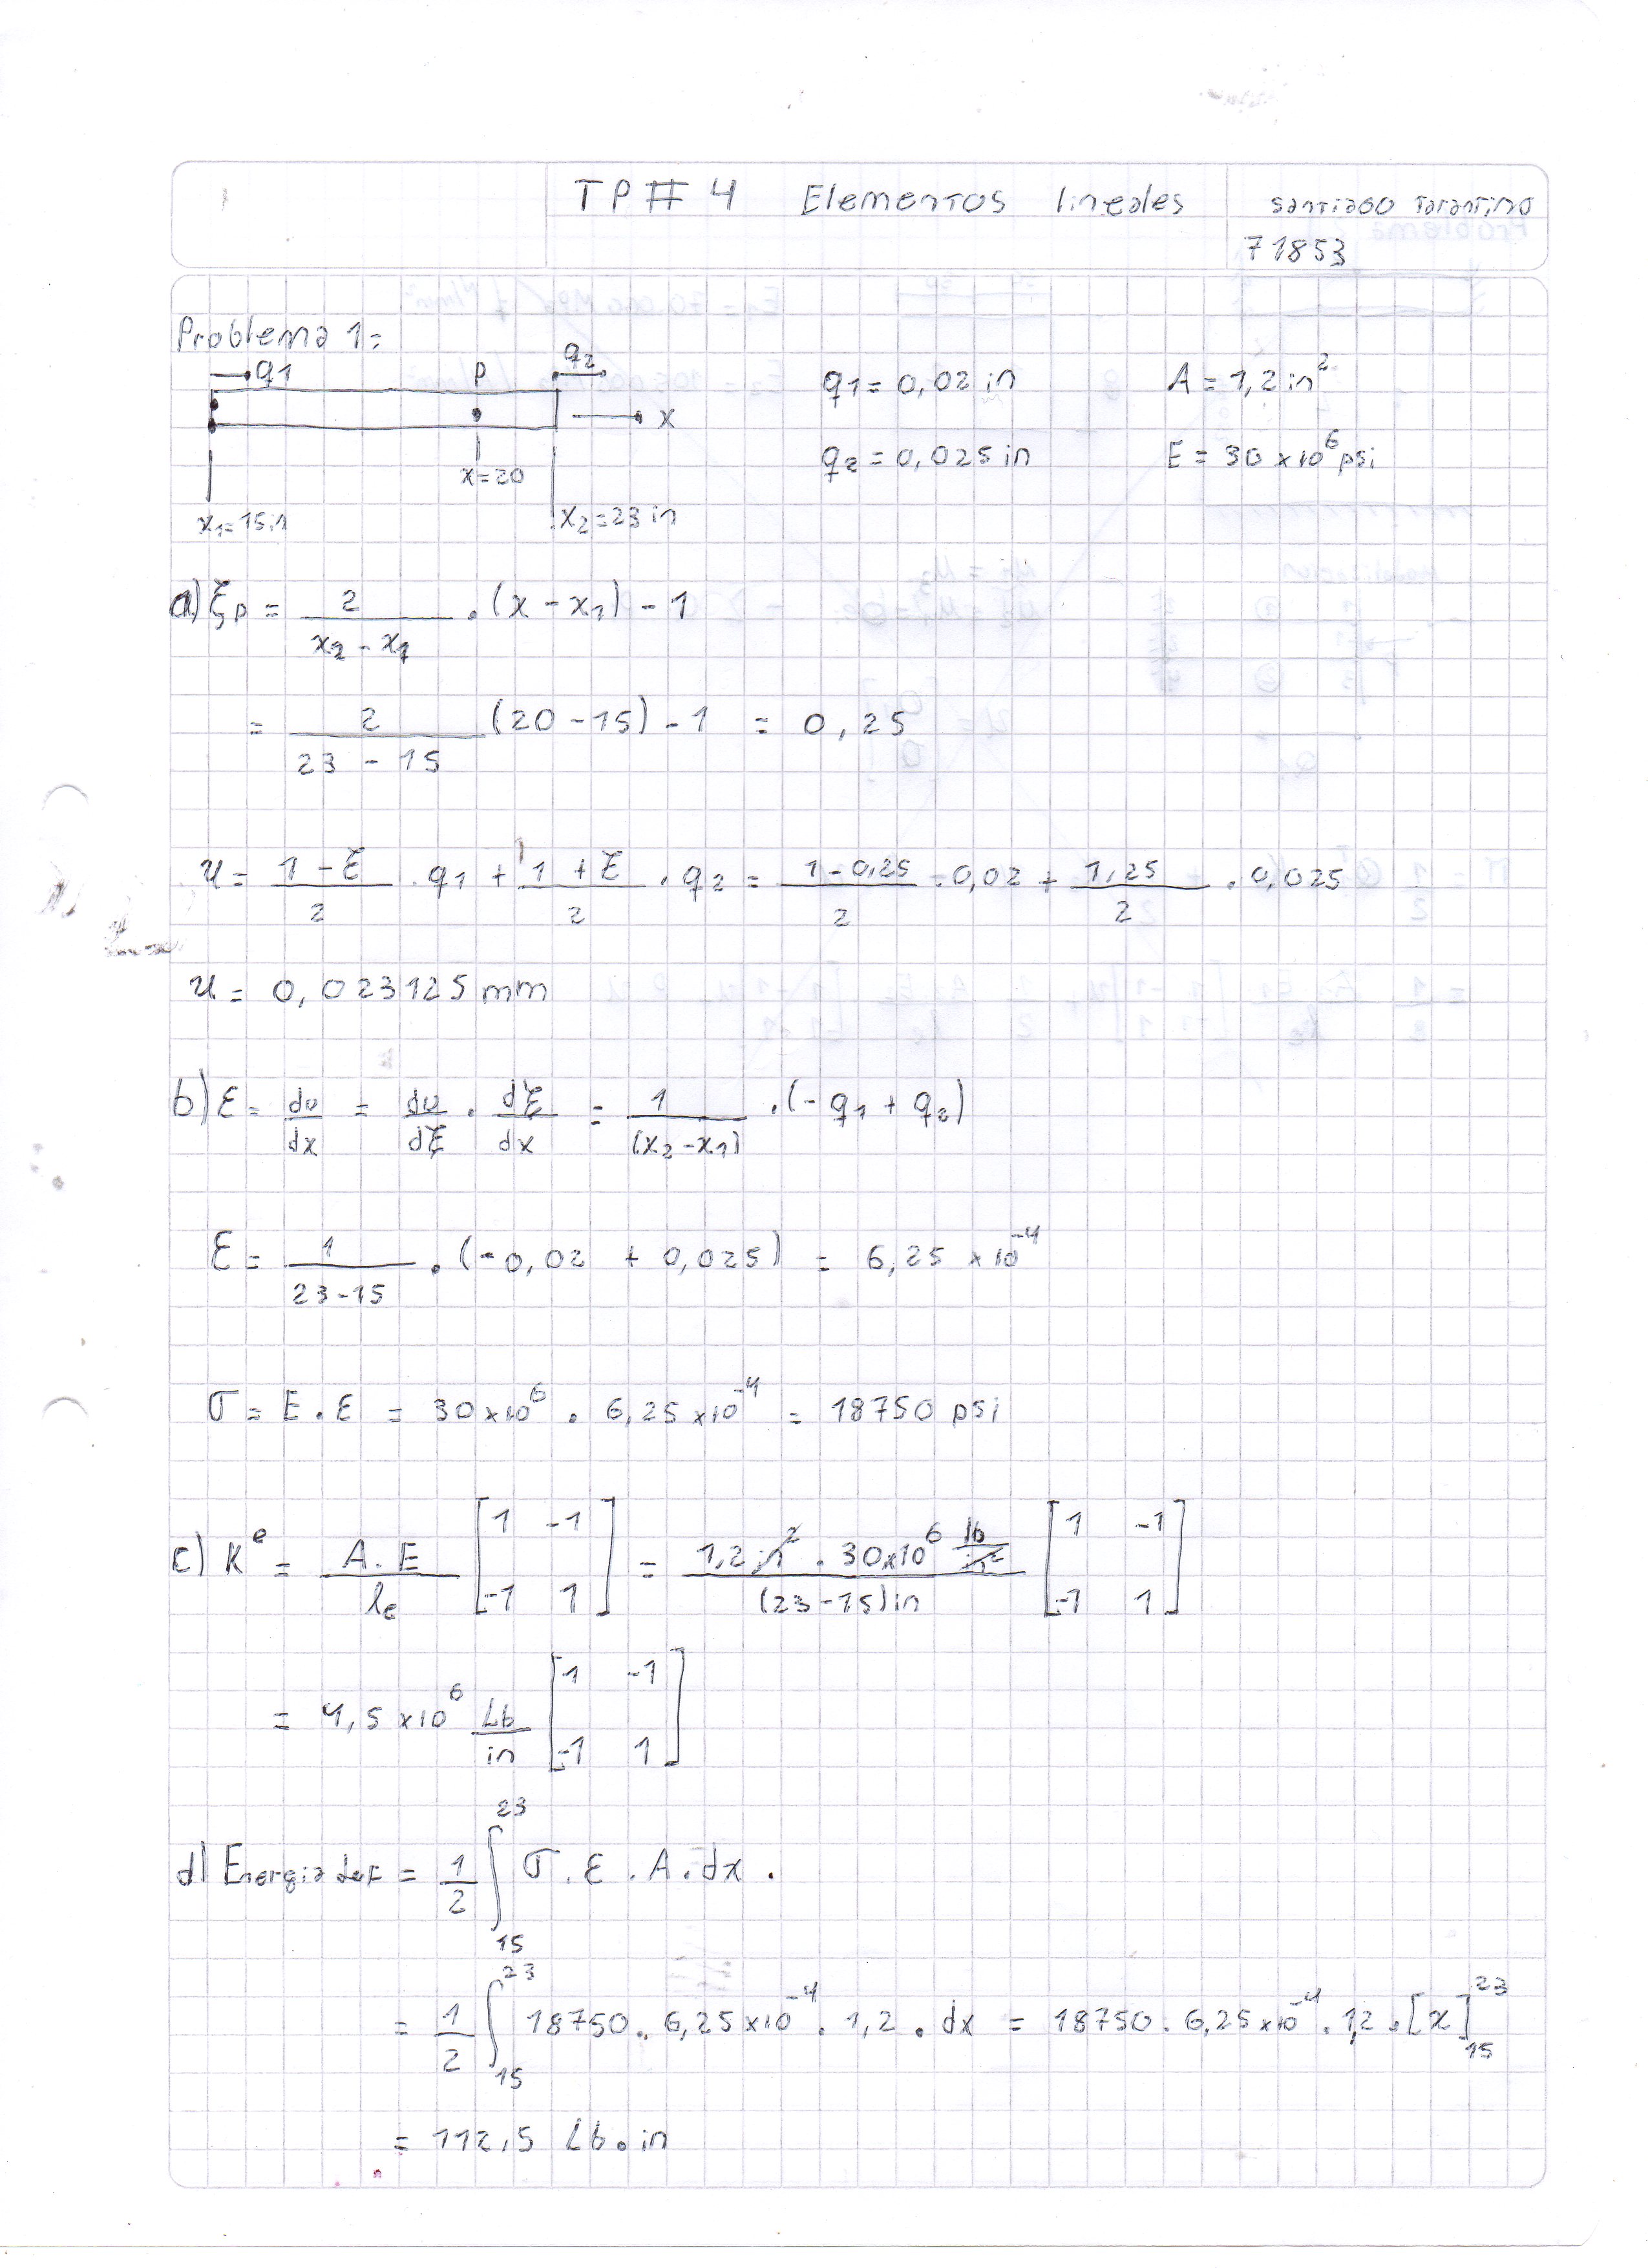 TP# 4 Elementos lineales
Santiago Tarantino
71853
Problema 1:
q1 P q2
x
x=20
x₁=15in x₂=23 in
q1 = 0,02 in A = 1,2 in²
q2 = 0,025 in E = 30 x10⁶ psi
a) ξp = 2/(x₂ - x₁) . (x - x₁) - 1
= 2/(23 - 15) (20 - 15) - 1 = 0,25
u = (1 - ξ)/2 . q1 + (1 + ξ)/2 . q2 = (1 - 0,25)/2 . 0,02 + 1,25/2 . 0,025
u = 0,023125 mm
b) ε = du/dx = du/dξ . dξ/dx = 1/(x₂ - x₁) . (- q₁ + q₂)
ε = 1/(23-15) . (-0,02 + 0,025) = 6,25 x10⁻⁴
σ = E . ε = 30x10⁶ . 6,25 x10⁻⁴ = 18750 psi
c) Kᵉ = A . E/le [1 -1; -1 1] = 1,2 in² . 30x10⁶ lb/in² / (23-15)in [1 -1; -1 1]
= 4,5 x10⁶ Lb/in [1 -1; -1 1]
d) Energia def = 1/2 ∫₁₅²³ σ . ε . A . dx .
= 1/2 ∫₁₅²³ 18750 . 6,25 x10⁻⁴ . 1,2 . dx = 18750 . 6,25 x10⁻⁴ . 1,2 . [x]₁₅²³
= 112,5 Lb.in